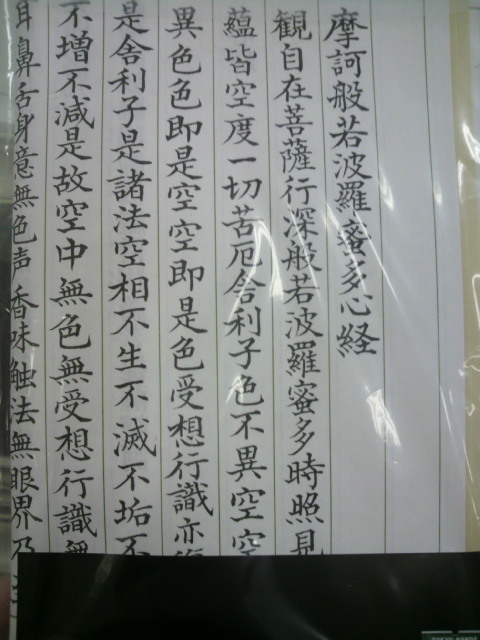 摩訶般若波羅蜜多心経
観自在菩薩行深般若波羅蜜多時照見
蘊皆空度一切苦厄舎利子色不異空空
異色色即是空空即是色受想行識亦復
是舎利子是諸法空相不生不滅不垢不
不増不減是故空中無色無受想行識無
耳鼻舌身意無色声香味触法無眼界乃